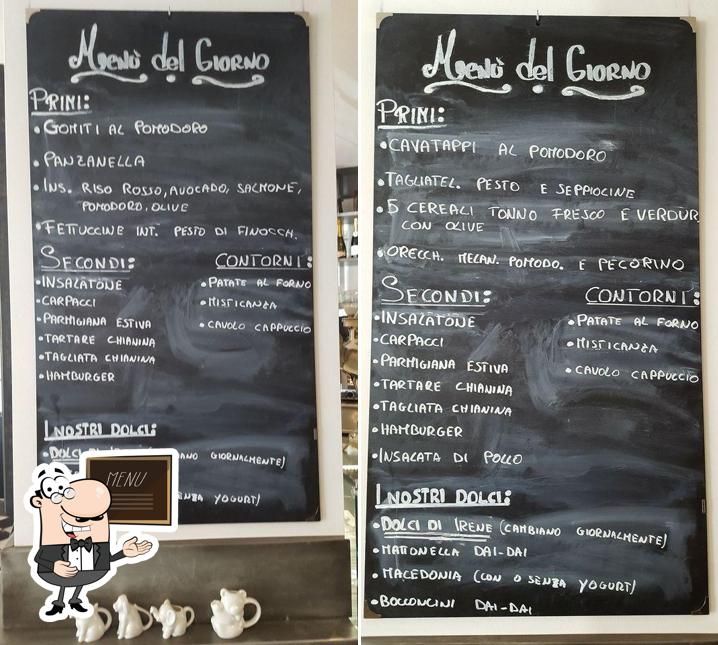 Menù del Giorno
PRIMI:
• GOMITI AL POMODORO
• PANZANELLA
• INS. RISO ROSSO, AVOCADO, SALMONE,
POMODORO, OLIVE
• FETTUCCINE INT. PESTO DI FINOCCH.
SECONDI:
• INSALATONE
• CARPACCI
• PARMIGIANA ESTIVA
• TARTARE CHIANINA
• TAGLIATA CHIANINA
• HAMBURGER
CONTORNI:
• PATATE AL FORNO
• MISTICANZA
• CAVOLO CAPPUCCIO
I NOSTRI DOLCI:
• DOLCI GIORNALMENTE)
YOGURT)
MENU
Menù del Giorno
PRIMI:
• CAVATAPPI AL POMODORO
• TAGLIATEL. PESTO E SEPPIOLINE
• 5 CEREALI TONNO FRESCO E VERDUR
CON OLIVE
• ORECCH. MELAN. POMODO. E PECORINO
SECONDI:
• INSALATONE
• CARPACCI
• PARMIGIANA ESTIVA
• TARTARE CHIANINA
• TAGLIATA CHIANINA
• HAMBURGER
• INSALATA DI POLLO
CONTORNI:
• PATATE AL FORNO
• MISTICANZA
• CAVOLO CAPPUCCIO
I NOSTRI DOLCI:
• DOLCI DI IRENE (CAMBIANO GIORNALMENTE)
• MATTONELLA DAI-DAI
• MACEDONIA (CON O SENZA YOGURT)
• BOCCONCINI DAI-DAI